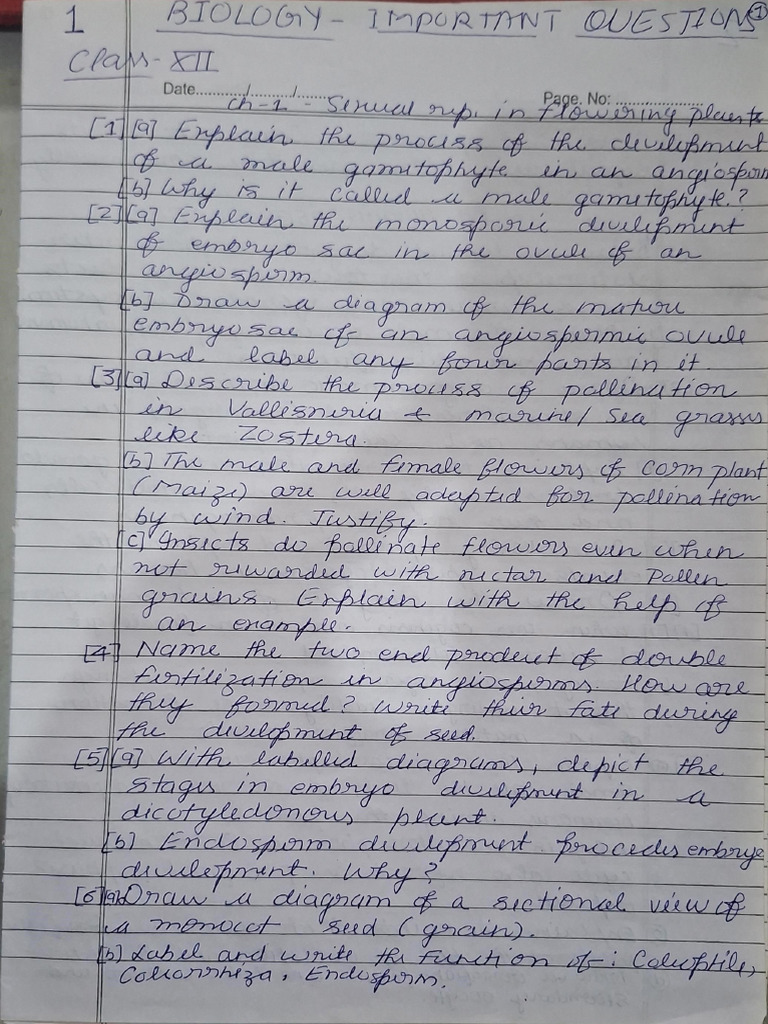 1 BIOLOGY - IMPORTANT QUESTIONS ①
Class - XII
Date........../........../.......... Page. No: ......................
Ch-1 - Sexual rep. in flowering plants
[1] [a] Explain the process of the development
of a male gametophyte in an angiosperm
[b] Why is it called a male gametophyte?
[2] [a] Explain the monosporic development
of embryo sac in the ovule of an
angiosperm.
[b] Draw a diagram of the mature
embryo sac of an angiospermic ovule
and label any four parts in it.
[3] [a] Describe the process of pollination
in Vallisneria & marine/ Sea grasses
like Zostera.
[b] The male and female flowers of corn plant
(Maize) are well adapted for pollination
by wind. Justify.
[c] Insects do pollinate flowers even when
not rewarded with nectar and Pollen
grains. Explain with the help of
an example.
[4] Name the two end product of double
fertilization in angiosperms. How are
they formed? Write their fate during
the development of seed.
[5] [a] With labelled diagrams, depict the
stages in embryo development in a
dicotyledonous plant.
[b] Endosperm development procedes embryo
development. Why?
[6] [a] Draw a diagram of a sectional view of
a monocot seed (grain).
[b] Label and write the function of : Coleoptile,
Coleorrhiza, Endosperm.